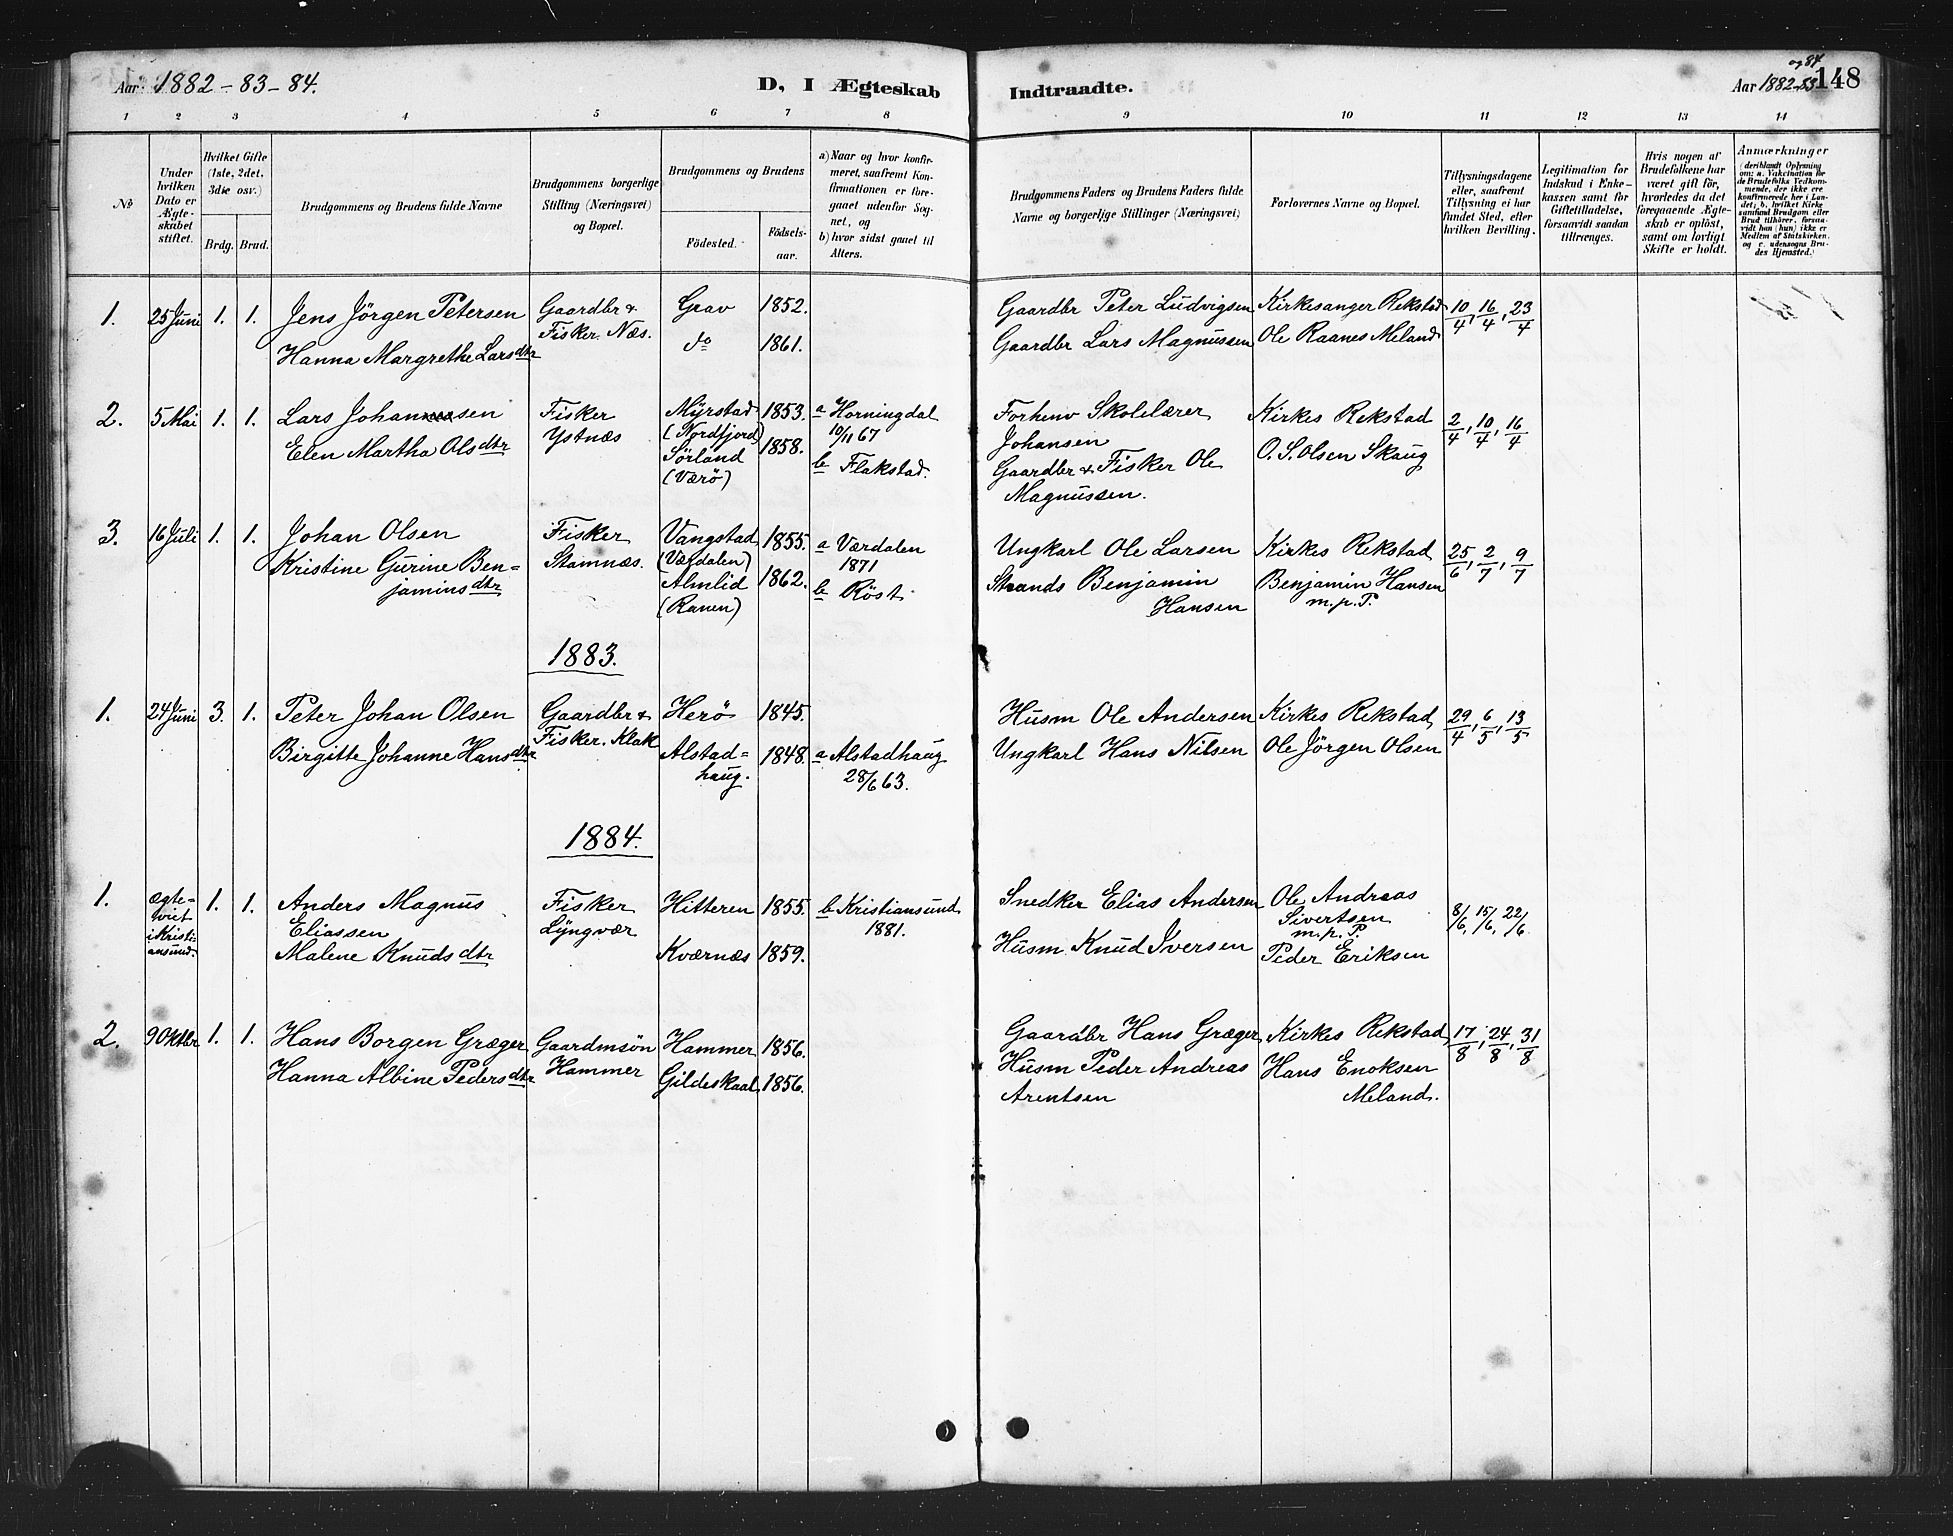 Aar: 1882-83-84. D, I Ægteskab Indtraadte. Aar 1882-83 og 84 148
1 2 3 4 5 6 7 8 9 10 11 12 13 14
No
Under hvilken Dato er Ægteskabet stiftet.
Hvilket Gifte (1ste, 2det, 3die osv.)
Brdg. Brud.
Brudgommens og Brudens fulde Navne
Brudgommens borgerlige Stilling (Næringsvei) og Bopæl.
Brudgommens og Brudens
Födested. Födselsaar.
a) Naar og hvor konfirmeret, saafremt Konfirmationen er foregaaet udenfor Sognet, og
b) hvor sidst gaaet til Alters.
Brudgommens Faders og Brudens Faders fulde Navne og borgerlige Stillinger (Næringsvei)
Forlovernes Navne og Bopæl.
Tillysningsdagene eller, saafremt Tillysning ei har fundet Sted, efter hvilken Bevilling.
Legitimation for Indskud i Enkekassen samt for Giftetilladelse, forsaavidt saadan tiltrænges.
Hvis nogen af Brudefolkene har været gift för, hvorledes da det foregaaende Ægteskab er oplöst, samt om lovligt Skifte er holdt.
Anmærkninger
(deriblandt Oplysning om: a. Vakcination for de Brudefolks Vedkommende, der ikke ere konfirmerede her i Landet; b. hvilket Kirkesamfund Brudgom eller Brud tilhörer, forsaavidt han (hun) ikke er Medlem af Statskirken, og c. udensogns Brudes Hjemsted.)
1. 25 Juni 1. 1. Jens Jörgen Petersen Gaardbr & Grav 1852. Gaardbr Peter Ludvigsen Kirkesanger Rekstad 10/4, 16/4, 23/4
Hanna Margrethe Larsdtr Fisker. Næs. do 1861. Gaardbr Lars Magnussen Ole Raanes Meland
2. 5 Mai 1. 1. Lars Johansen Fisker Myrstad 1853. a Horningdal Forhenv Skolelærer Kirkes Rekstad 2/4, 10/4, 16/4
Elen Martha Olsdtr Ystnæs (Nordfjord) 10/11 67 Johansen O. S. Olsen Skaug
Sörland 1858. b Flakstad. Gaardbr & Fisker Ole
(Værö) Magnussen.
3. 16 Juli 1. 1. Johan Olsen Fisker Vangstad 1855. a Værdalen Ungkarl Ole Larsen Kirkes Rekstad 25/6, 2/7, 9/7
Kristine Gurine Ben= Stamnæs. (Værdalen) 1871 Strands Benjamin Benjamin Hansen
jaminsdtr Almlid 1862. b Röst. Hansen m.p.P.
(Ranen)
1883.
1. 24 Juni 3. 1. Peter Johan Olsen Gaardbr & Herö 1845. Husm Ole Andersen Kirkes Rekstad 29/4, 6/5, 13/5
Birgitte Johanne Hansdtr Fisker. Klak Alstad= 1848. a Alstadhaug Ungkarl Hans Nilsen Ole Jörgen Olsen
haug. 28/6 63.
1884.
1. ægte= 1. 1. Anders Magnus Fisker Hitteren 1855. b Kristiansund Snedker Elias Andersen Ole Andreas 8/6, 15/6, 22/6.
viet Eliassen Lyngvær 1881. Sivertsen
i Kristi= m.p.P.
ansund. Malene Knudsdtr Kværnæs 1859. Husm Knud Iversen Peder Eriksen
2. 9 Oktbr 1. 1. Hans Borgen Græger Gaardmsön Hammer 1856. Gaardbr Hans Græger Kirkes Rekstad 17/8, 24/8, 31/8
Hanna Albine Pedersdtr Hammer Gildeskaal 1856. Husm Peder Andreas Hans Enoksen
Arentsen Meland.